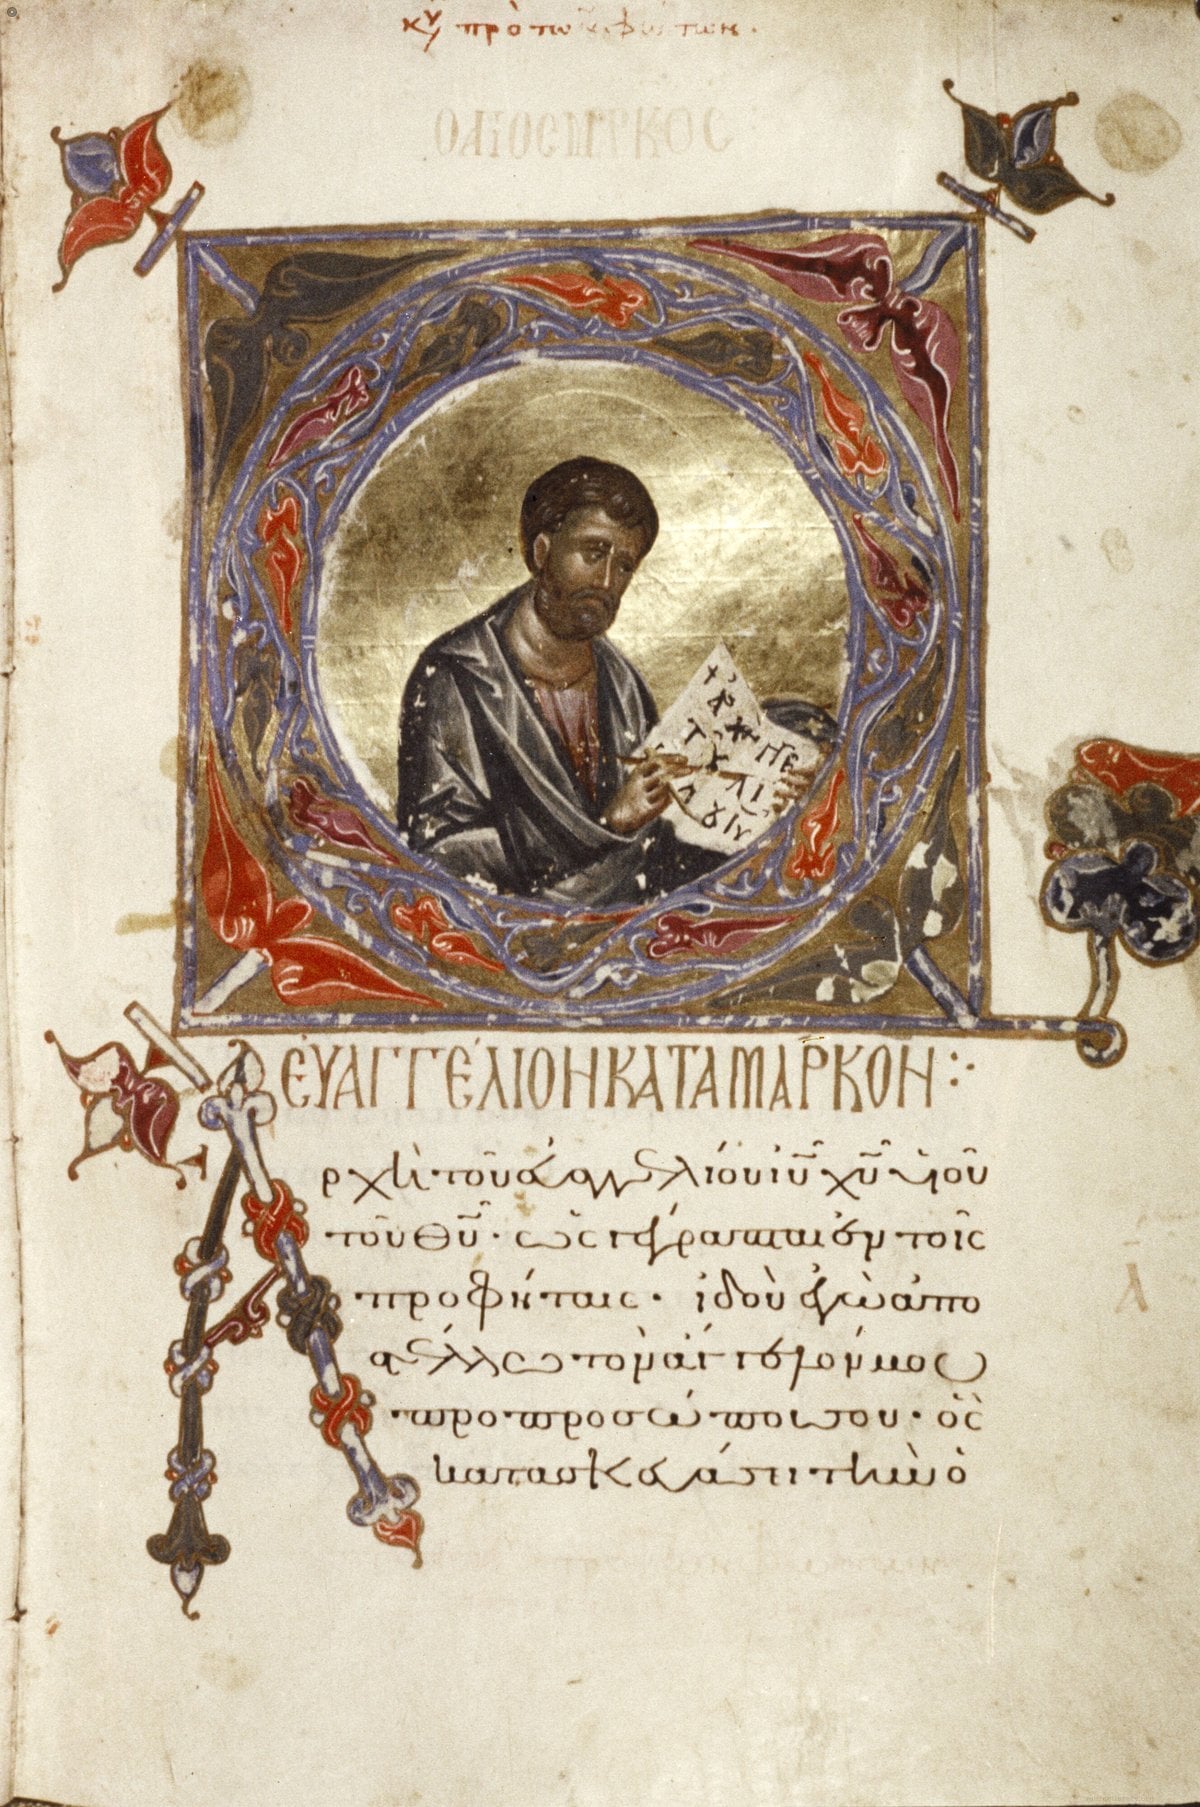 κυ πρὸ τῶν φώτων.
Ο ΑΓΙΟΣ ΜΑΡΚΟΣ
+ ἀρχὴ
τοῦ
ΕΥΑΓΓΕΛΙΟΝ ΚΑΤΑ ΜΑΡΚΟΝ :·
Ἀρχὴ τοῦ εὐαγγελίου ἰυ χυ υἱοῦ
τοῦ θυ· ὡς γέγραπται ἐν τοῖς
προφήταις· ἰδοὺ ἐγὼ ἀπο
στέλλω τὸν ἄγγελόν μου
πρὸ προσώπου σου· ὃς
κατασκευάσει τὴν ὁ